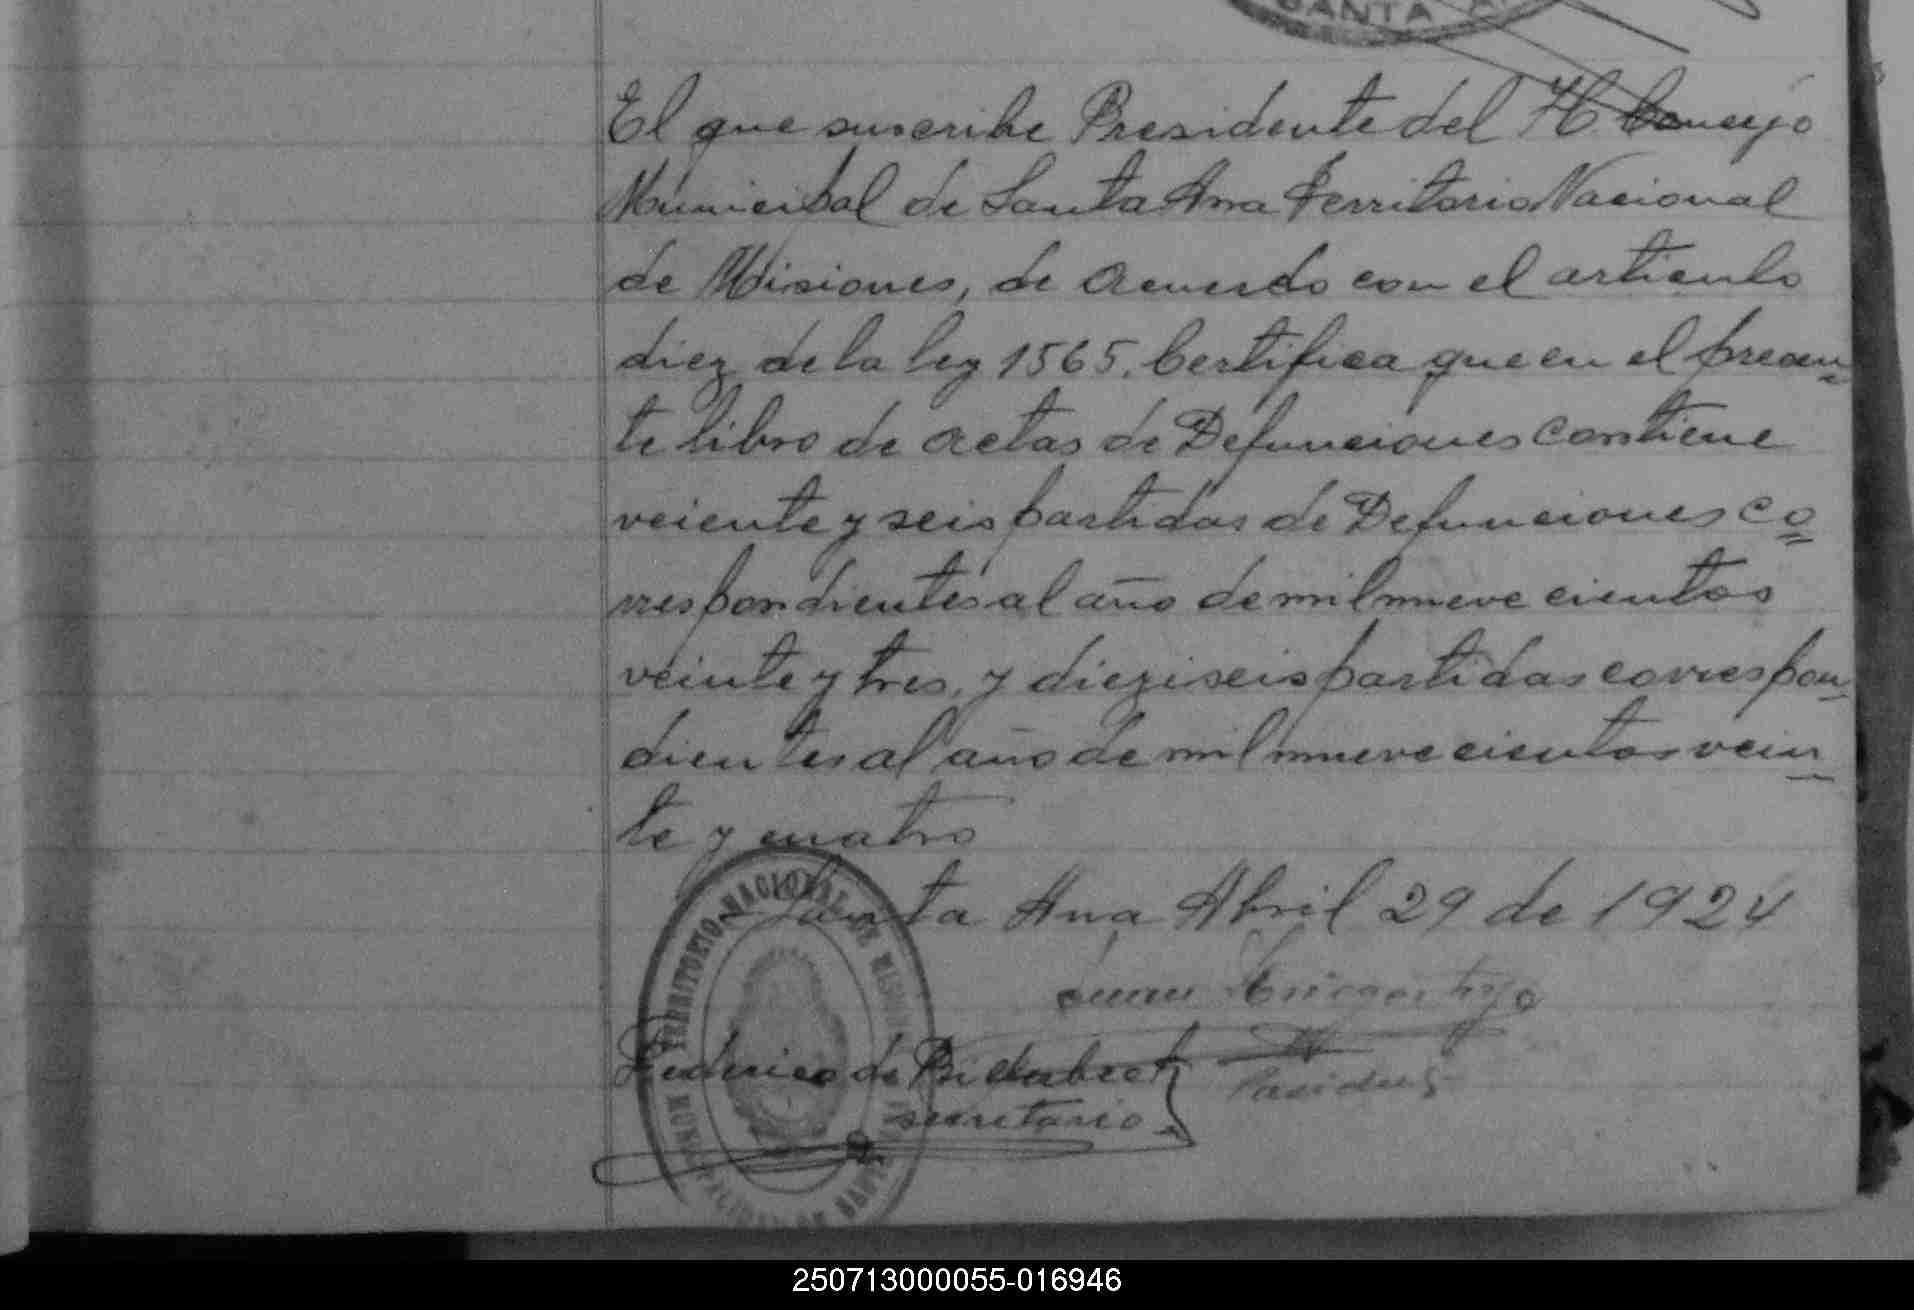 SANTA A
El que suscribe Presidente del H. Concejo
Municipal de Santa Ana Territorio Nacional
de Misiones, de acuerdo con el articulo
diez de la ley 1565. Certifica que en el presen
te libro de actas de Defunciones contiene
veiente y seis partidas de Defunciones co=
rrespondientes al año de mil nueve cientos
veinte y tres, y dieziseis partidas correspon-
dientes al año de mil nueve cientos vein-
te y cuatro
Santa Ana Abril 29 de 1924
Juan
Federico de
secretario
MUNICIPALIDAD DE SANTA
TERRITORIO NACIONAL DE MISIONES
250713000055-016946